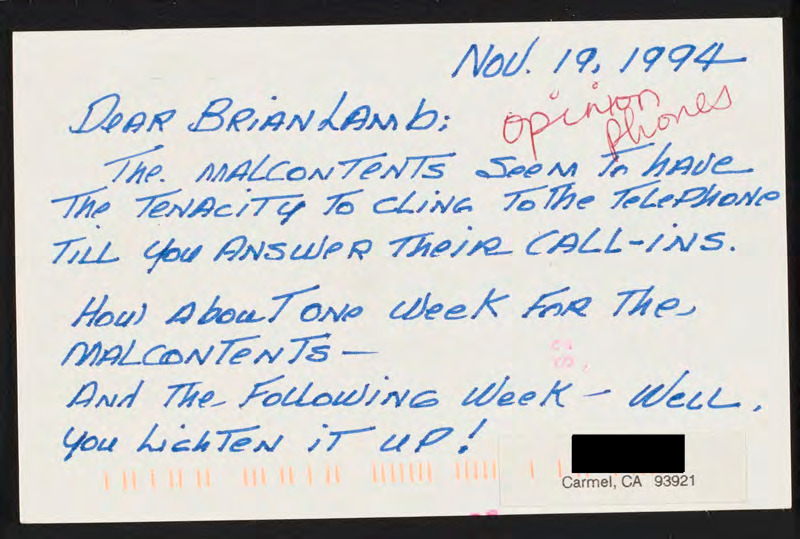 Nov. 19, 1994
Dear Brian Lamb:
opinion
phones
The malcontents seem to have
the tenacity to cling to the telephone
till you answer their call-ins.
How about one week for the
malcontents —
And the following week — well,
you lighten it up!
Carmel, CA 93921